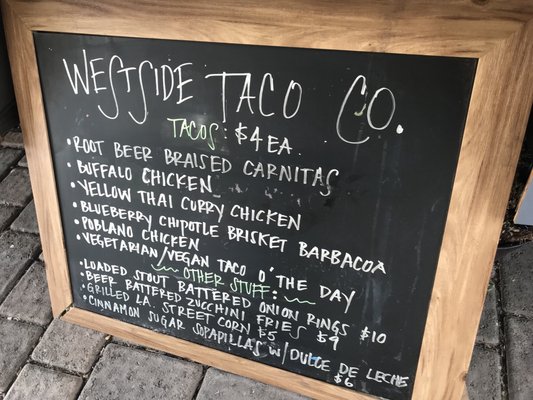 WESTSIDE TACO CO.
TACOS: $4 EA.
• ROOT BEER BRAISED CARNITAS
• BUFFALO CHICKEN
• YELLOW THAI CURRY CHICKEN
• BLUEBERRY CHIPOTLE BRISKET BARBACOA
• POBLANO CHICKEN
• VEGETARIAN/VEGAN TACO O' THE DAY
OTHER STUFF:
• LOADED STOUT BATTERED ONION RINGS $10
• BEER BATTERED ZUCCHINI FRIES $9
• GRILLED L.A. STREET CORN $5
• CINNAMON SUGAR SOPAPILLA'S W/ DULCE DE LECHE $6